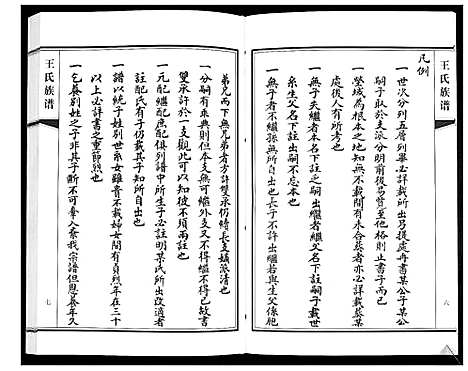 王氏族谱
凡例
一世次分列五層列畢必詳載所出另提處再書某公子某公
子取於支派分明前後易贊至他格則止書子而已
一塋域為根本之地知無不載間有未合葬者亦必詳載葬
處後人有所考也
一無子夫繼者本名下註之嗣出繼者繼父名下註嗣子載世
系生父名下註出嗣不忘本也
一無子者不繼孫無所自出也長子不許出繼若與生父係胞
六
弟兄而下無兄弟者方許雙承仍續長支嫡派清也
一分嗣有乘興則但本支無可繼外支又不得繼不得已故書
雙承許於一支觀此可以知彼不項兩註也
一元配繼配庶配俱列譜中所生子必註明某氏所出改適者
註配氏有子仍載其子知所自出也
一譜以統子姓別世系女雖貴不載婦女間有貞烈年在三十
以上必詳書之重節烈也
一乞養別姓之子非其子斷不可摹入紊我宗譜但恩養年久
王氏族谱
七